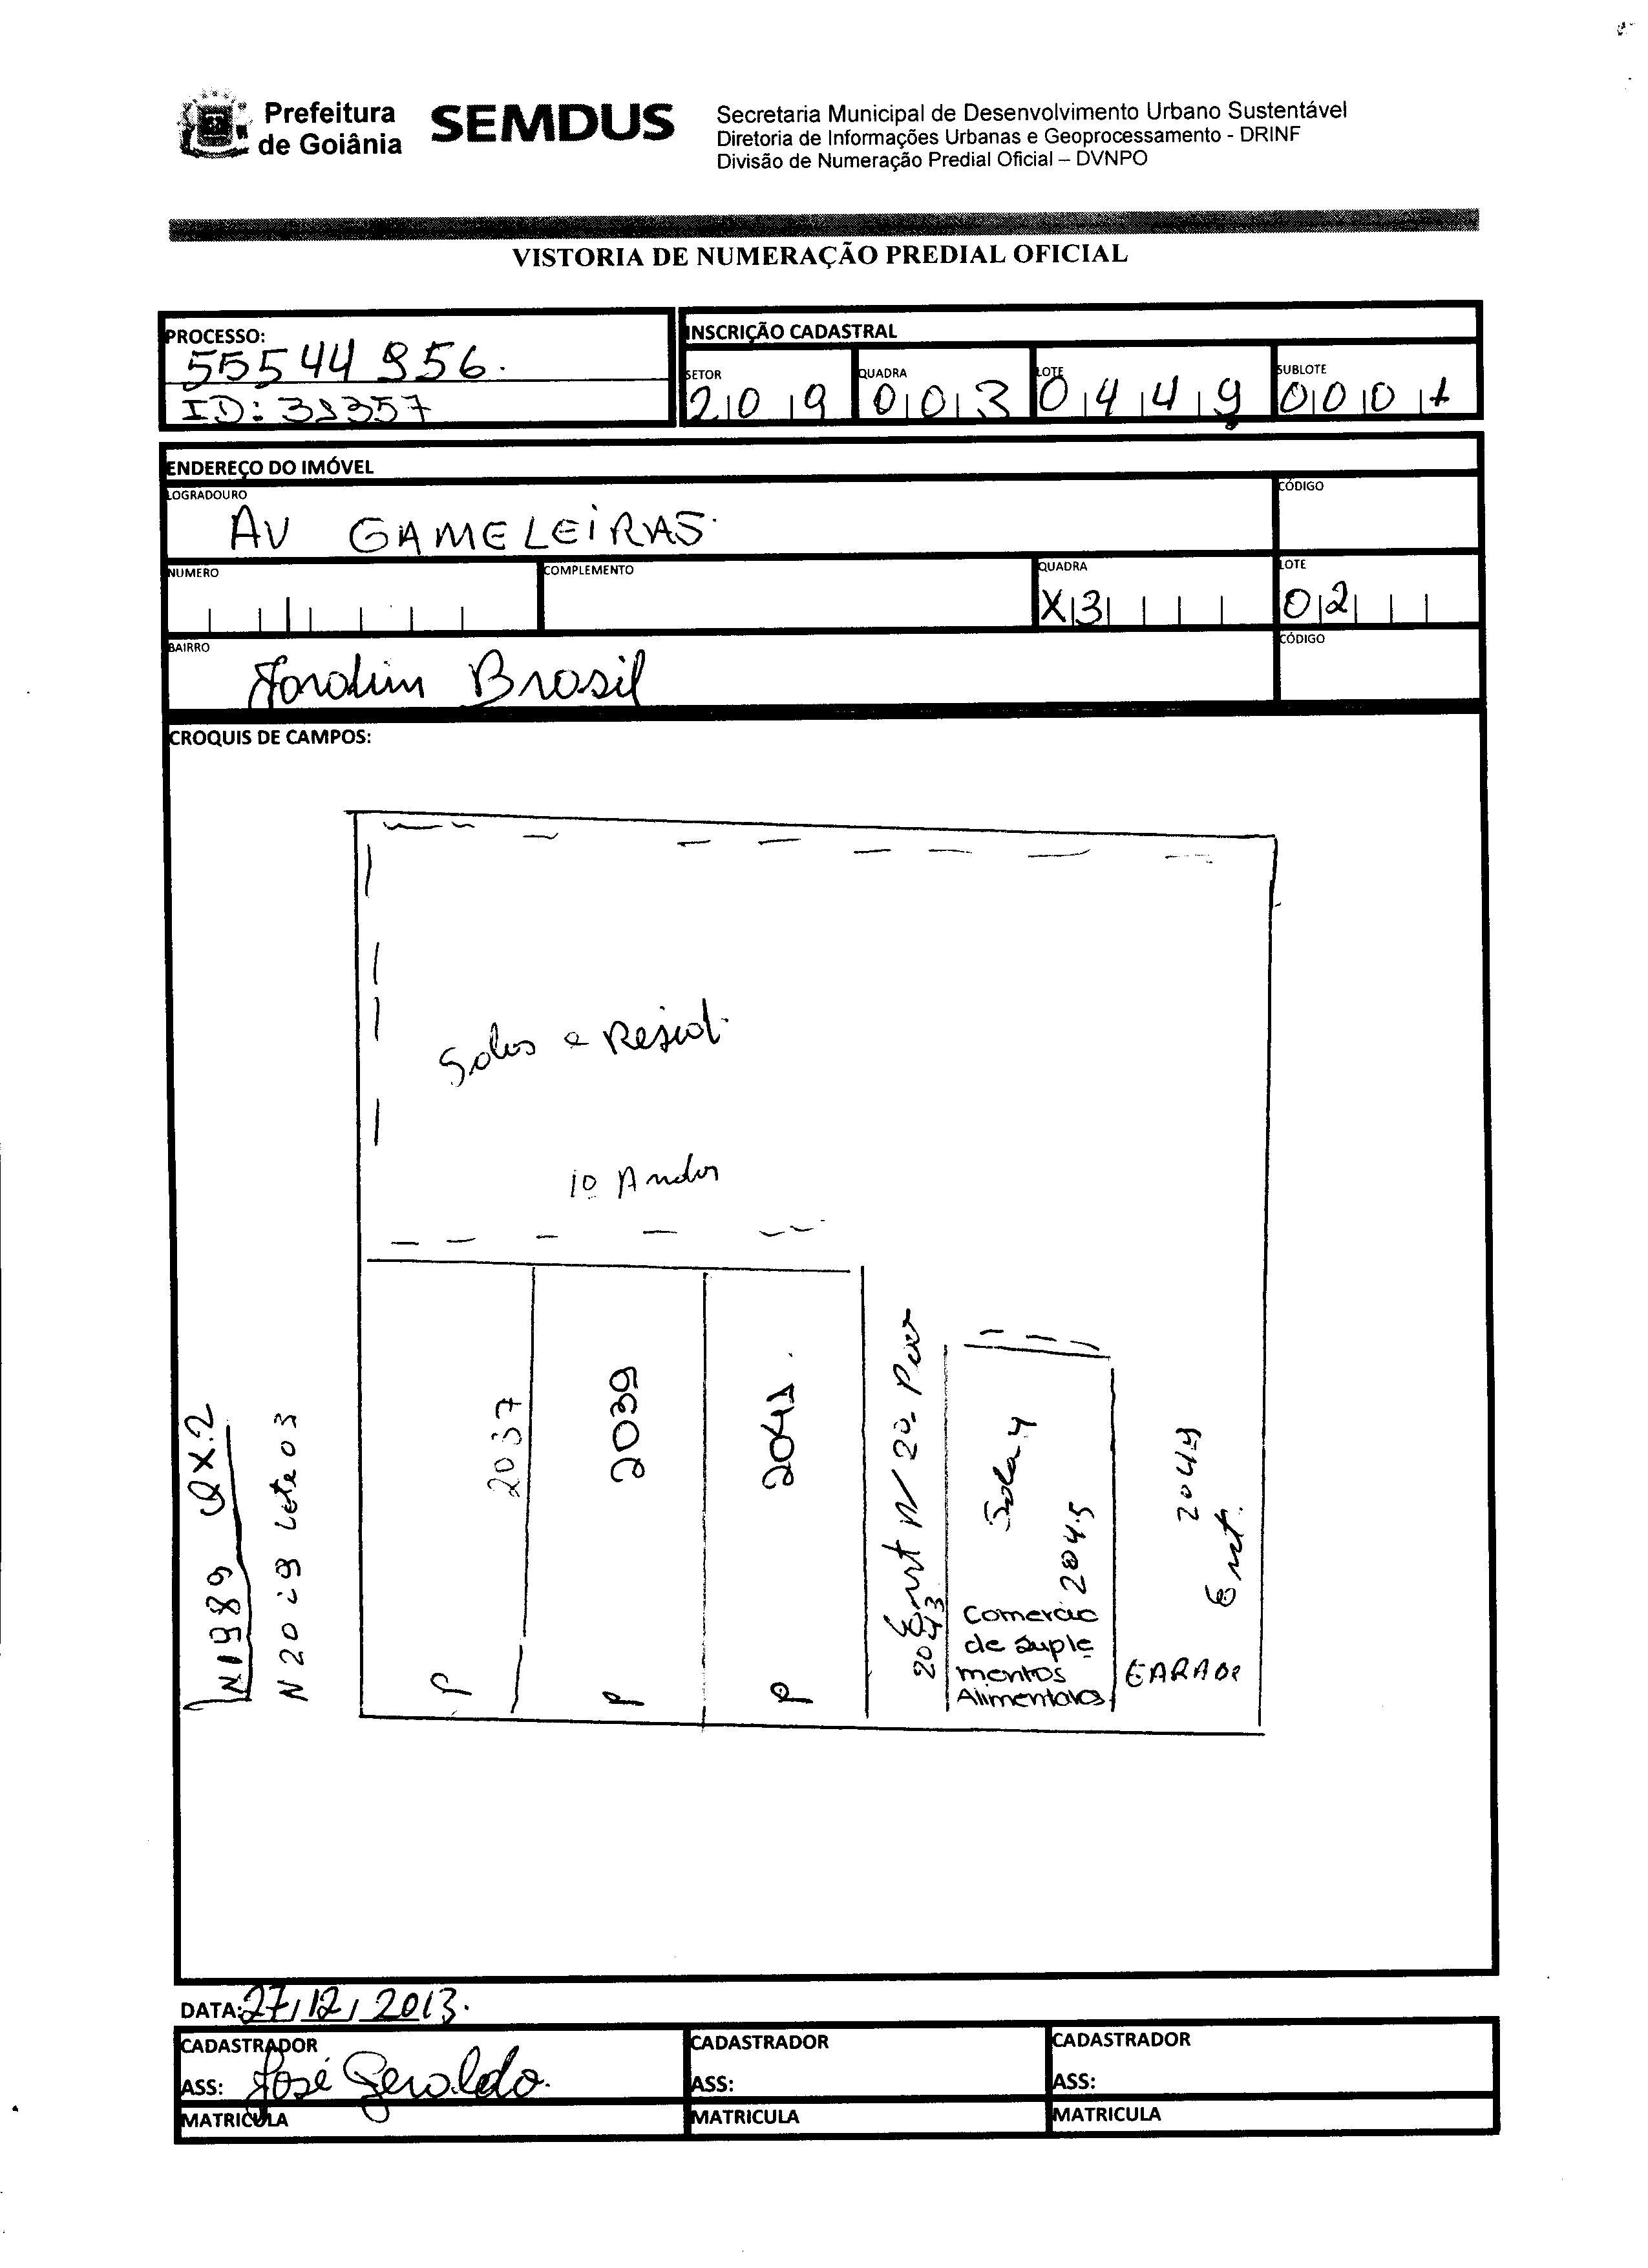 Prefeitura
de Goiânia
SEMDUS
Secretaria Municipal de Desenvolvimento Urbano Sustentável
Diretoria de Informações Urbanas e Geoprocessamento - DRINF
Divisão de Numeração Predial Oficial – DVNPO
VISTORIA DE NUMERAÇÃO PREDIAL OFICIAL
PROCESSO:
55544956.
ID: 38357
INSCRIÇÃO CADASTRAL
SETOR QUADRA LOTE SUBLOTE
209 003 0449 0001
ENDEREÇO DO IMÓVEL
LOGRADOURO CÓDIGO
AV GAMELEIRAS
NUMERO COMPLEMENTO QUADRA LOTE
X3 02
BAIRRO CÓDIGO
Jardim Brasil
CROQUIS DE CAMPOS:
Salas e Resid.
1º Andar
N1989 QX.2
N 2019 Lote 03
2037
P
2039
P
2041
P
Ent P/ 2º Pav
2043
Sala 4
2045
Comercio
de suple
mentos
Alimentares
2049
Ent.
GARAGE
DATA: 27/12/2013.
CADASTRADOR CADASTRADOR CADASTRADOR
ASS: José Geraldo. ASS: ASS:
MATRICULA MATRICULA MATRICULA